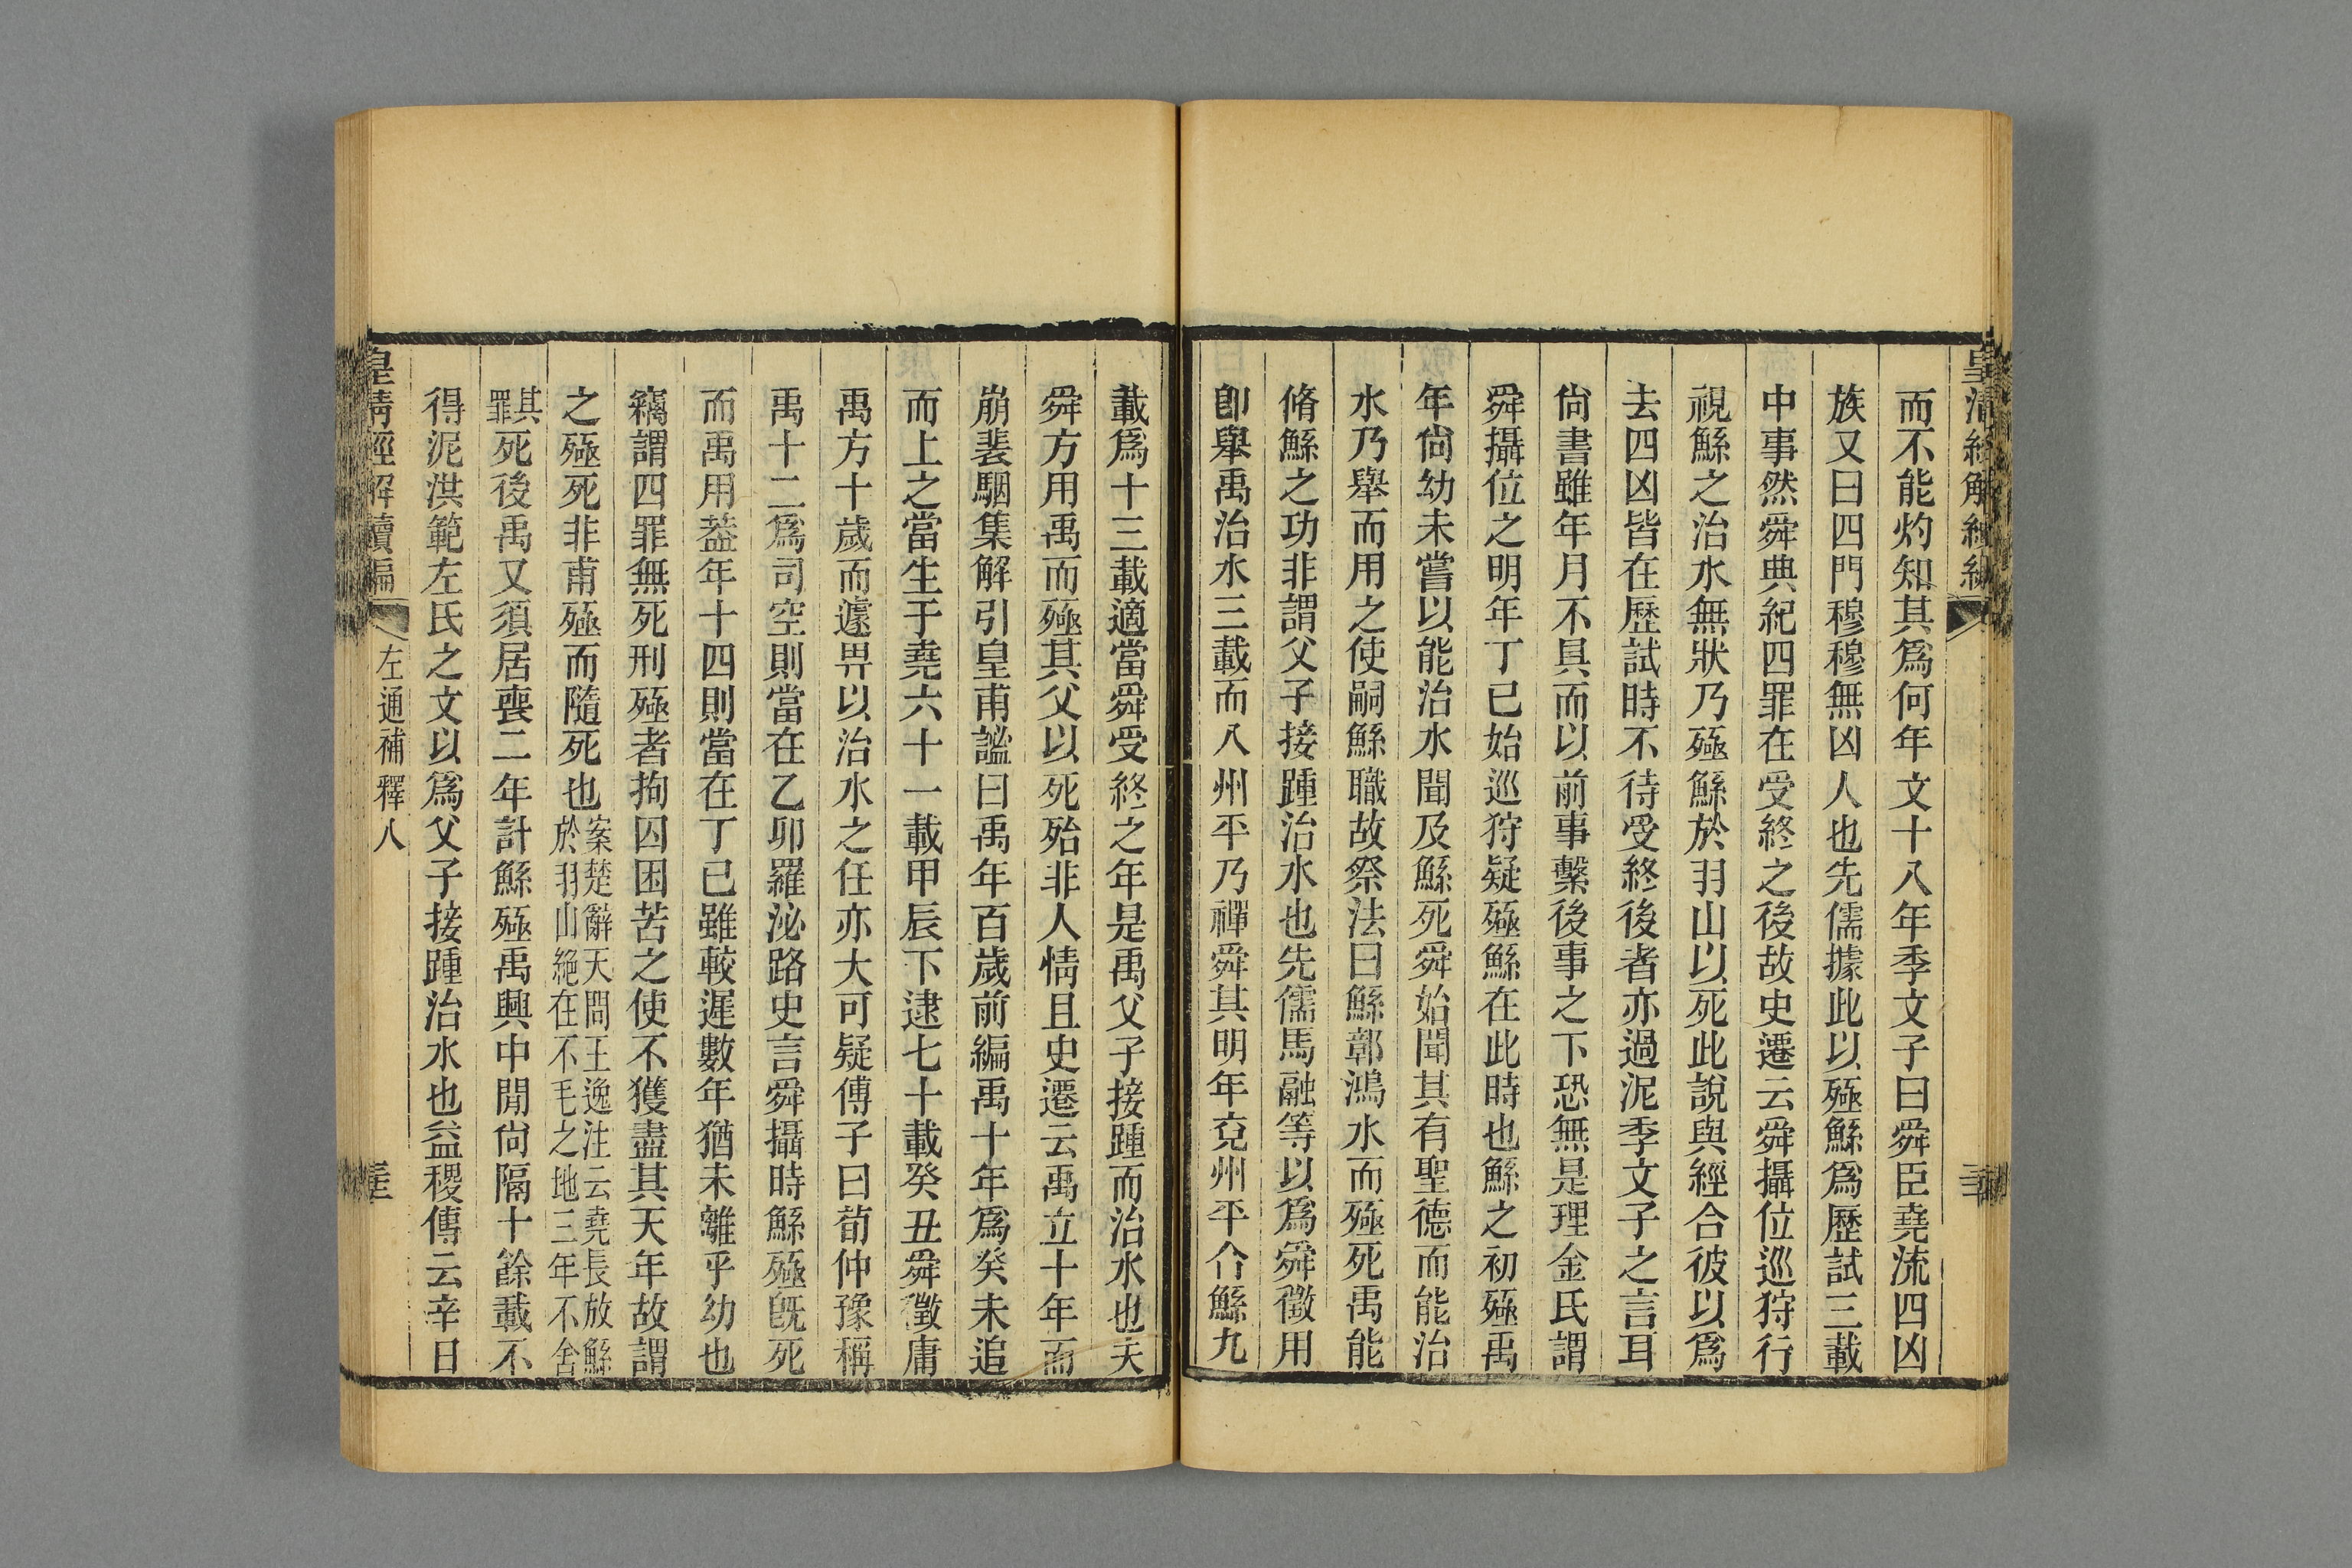 皇清經解續編
而不能灼知其爲何年文十八年季文子曰舜臣堯流四凶
族又曰四門穆穆無凶人也先儒據此以殛鯀爲歷試三載
中事然舜典紀四罪在受終之後故史遷云舜攝位巡狩行
視鯀之治水無狀乃殛鯀於羽山以死此說與經合彼以爲
去四凶皆在歷試時不待受終後者亦過泥季文子之言耳
尙書雖年月不具而以前事繫後事之下恐無是理金氏謂
舜攝位之明年丁巳始巡狩疑殛鯀在此時也鯀之初殛禹
年尙幼未嘗以能治水聞及鯀死舜始聞其有聖德而能治
水乃舉而用之使嗣鯀職故祭法曰鯀鄣鴻水而殛死禹能
脩鯀之功非謂父子接踵治水也先儒馬融等以爲舜徵用
卽舉禹治水三載而八州平乃禪舜其明年兗州平合鯀九
載爲十三載適當舜受終之年是禹父子接踵而治水也夫
舜方用禹而殛其父以死殆非人情且史遷云禹立十年而
崩裴駰集解引皇甫謐曰禹年百歲前編禹十年爲癸未追
而上之當生于堯六十一載甲辰下逮七十載癸丑舜徵庸
禹方十歲而遽畀以治水之任亦大可疑傅子曰荀仲豫稱
禹十二爲司空則當在乙卯羅泌路史言舜攝時鯀殛旣死
而禹用葢年十四則當在丁巳雖較遲數年猶未離乎幼也
竊謂四罪無死刑殛者拘囚困苦之使不獲盡其天年故謂
之殛死非甫殛而隨死也案楚辭天問王逸注云堯長放鯀
於羽山絶在不毛之地三年不舍
其罪死後禹又須居喪二年計鯀殛禹興中閒尙隔十餘載不
得泥洪範左氏之文以爲父子接踵治水也益稷傳云辛日
皇清經解續編
左通補釋八